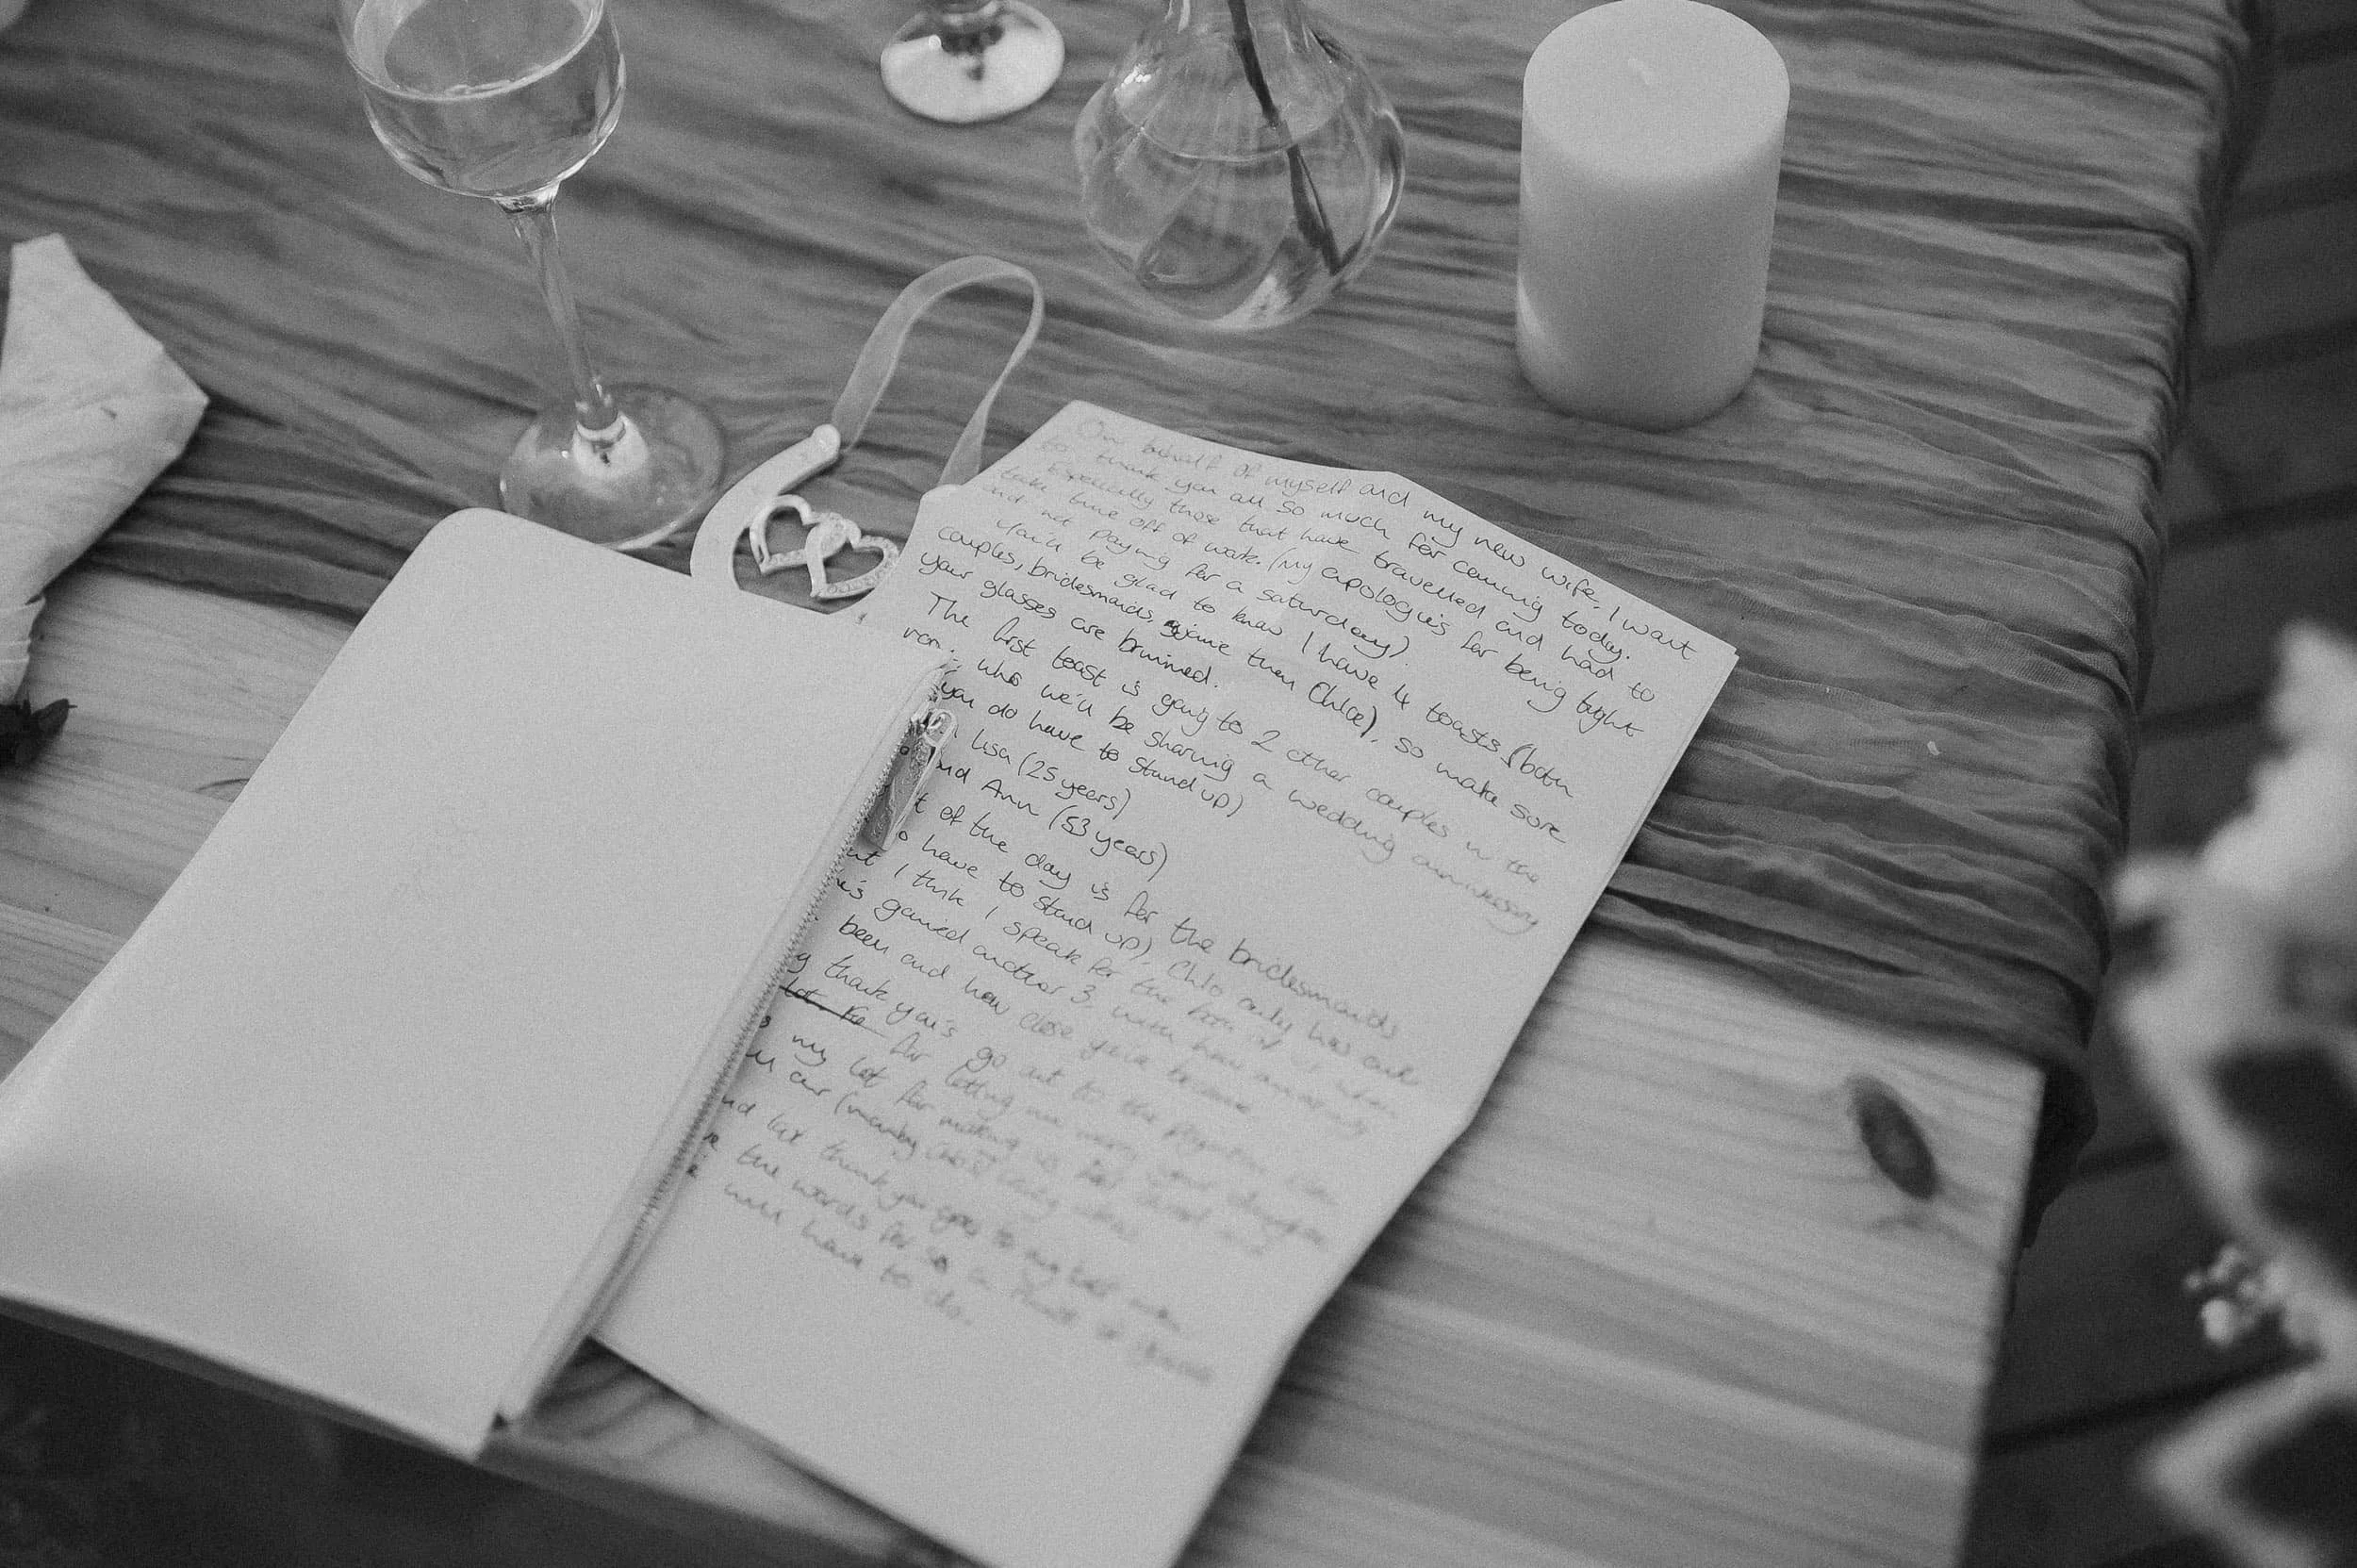 On behalf of myself and my new wife, I want
to thank you all so much for coming today.
Especially those that have travelled and had to
take time off of work. (My apologies for being tight
and not paying for a saturday).
You'll be glad to know I have 4 toasts (both
couples, bridesmaids, Jaime then Chloe), so make sure
your glasses are brimmed.
The first toast is going to 2 other couples in the
who we'll be sharing a wedding anniversary
you do have to stand up)
Lisa (25 years)
and Ann (53 years)
of the day is for the bridesmaids
have to stand up), Chlo only has one
I think I speak for the both of us when
gained another 3, with how amazing
been and how close you've become
thank you's go out to the
lot for
for letting me marry your daughter
my lot for making us feel
our (mainly
last thank you goes to my best man
the words for so a
will have to do.